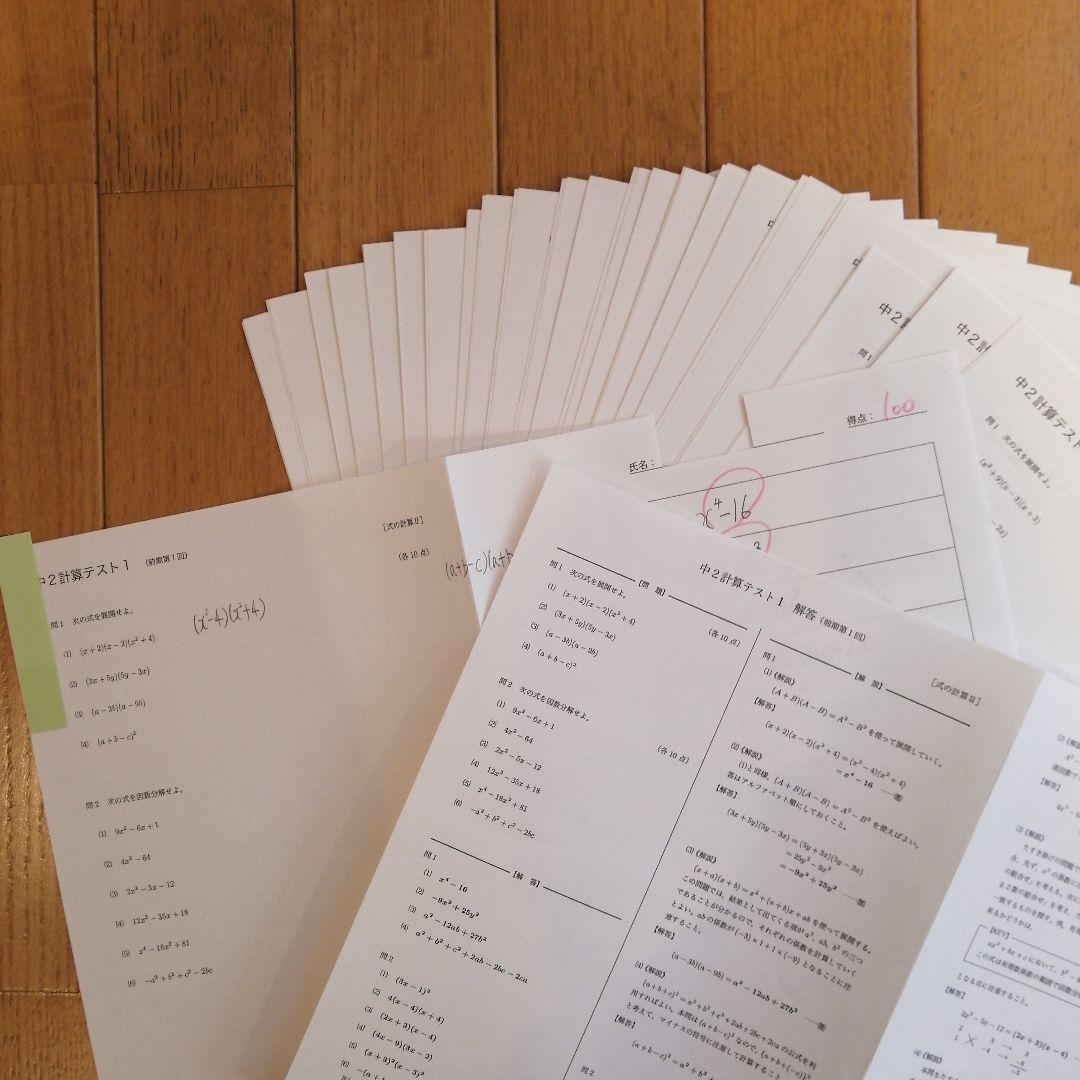 中2計算テスト1 (前期第1回)
[式の計算Ⅱ]
問1 次の式を展開せよ。
(各10点)
(1) (x+2)(x−2)(x²+4)
(x²-4)(x²+4)
(2) (3x+5y)(5y−3x)
(3) (a−3b)(a−9b)
(4) (a+b−c)²
問2 次の式を因数分解せよ。
(1) 9x²−6x+1
(2) 4x²−64
(3) 2x²−5x−12
(4) 12x²−35x+18
(5) x⁴−18x²+81
(6) −a²+b²+c²−2bc
氏名:
(a+b-c)(a+b
得点: 100
x⁴-16
中2計算テスト1 解答 (前期第1回)
[式の計算Ⅱ]
【問 題】
問1 次の式を展開せよ。
(各10点)
(1) (x+2)(x−2)(x²+4)
(2) (3x+5y)(5y−3x)
(3) (a−3b)(a−9b)
(4) (a+b−c)²
問2 次の式を因数分解せよ。
(各10点)
(1) 9x²−6x+1
(2) 4x²−64
(3) 2x²−5x−12
(4) 12x²−35x+18
(5) x⁴−18x²+81
(6) −a²+b²+c²−2bc
【解 答】
問1
(1) x⁴−16
(2) −9x²+25y²
(3) a²−12ab+27b²
(4) a²+b²+c²+2ab−2bc−2ca
問2
(1) (3x−1)²
(2) 4(x−4)(x+4)
(3) (2x+3)(x−4)
(4) (4x−9)(3x−2)
(5) (x+3)²(x−3)²
(6) −(a+
【解 説】
問1
(1)《解説》
(A+B)(A−B)=A²−B² を使って展開していく。
【解答】
(x+2)(x−2)(x²+4)=(x²−4)(x²+4)
=x⁴−16 ……㊎
(2)《解説》
(1)と同様、(A+B)(A−B)=A²−B² を使えばよい。
答はアルファベット順にしておくこと。
【解答】
(3x+5y)(5y−3x)=(5y+3x)(5y−3x)
=25y²−9x²
=−9x²+25y²
(3)《解説》
(x+a)(x+b)=x²+(a+b)x+ab を使って展開する。
この問題では、結果として出てくる項が a², ab, b² の三つ
であることが分かるので、それぞれの係数を計算していく
とよい。ab の係数が (−3)×1+1×(−9) となることに注
意すること。
【解答】
(a−3b)(a−9b)=a²−12ab+27b²
(4)《解説》
(a+b+c)²=a²+b²+c²+2ab+2bc+2ca の公式を利
用すればよい。本問は (a+b−c)² なので、{a+b+(−c)}²
と考えて、マイナスの符号に注意して計算すること。
【解答】
(a+b−c)²=a²+b²
問2
【解答】
【KEY】
ax²+bx+c において、b²−4
となる点に注意すること。
【解答】
2x²−5x−12=(2x+3)(x−4)
(4)《解説》
中2計
問1
中2計
中2計算テスト
問1 次の式を展開せよ。
(x²+9)(x−3)(x+3)
−2x)